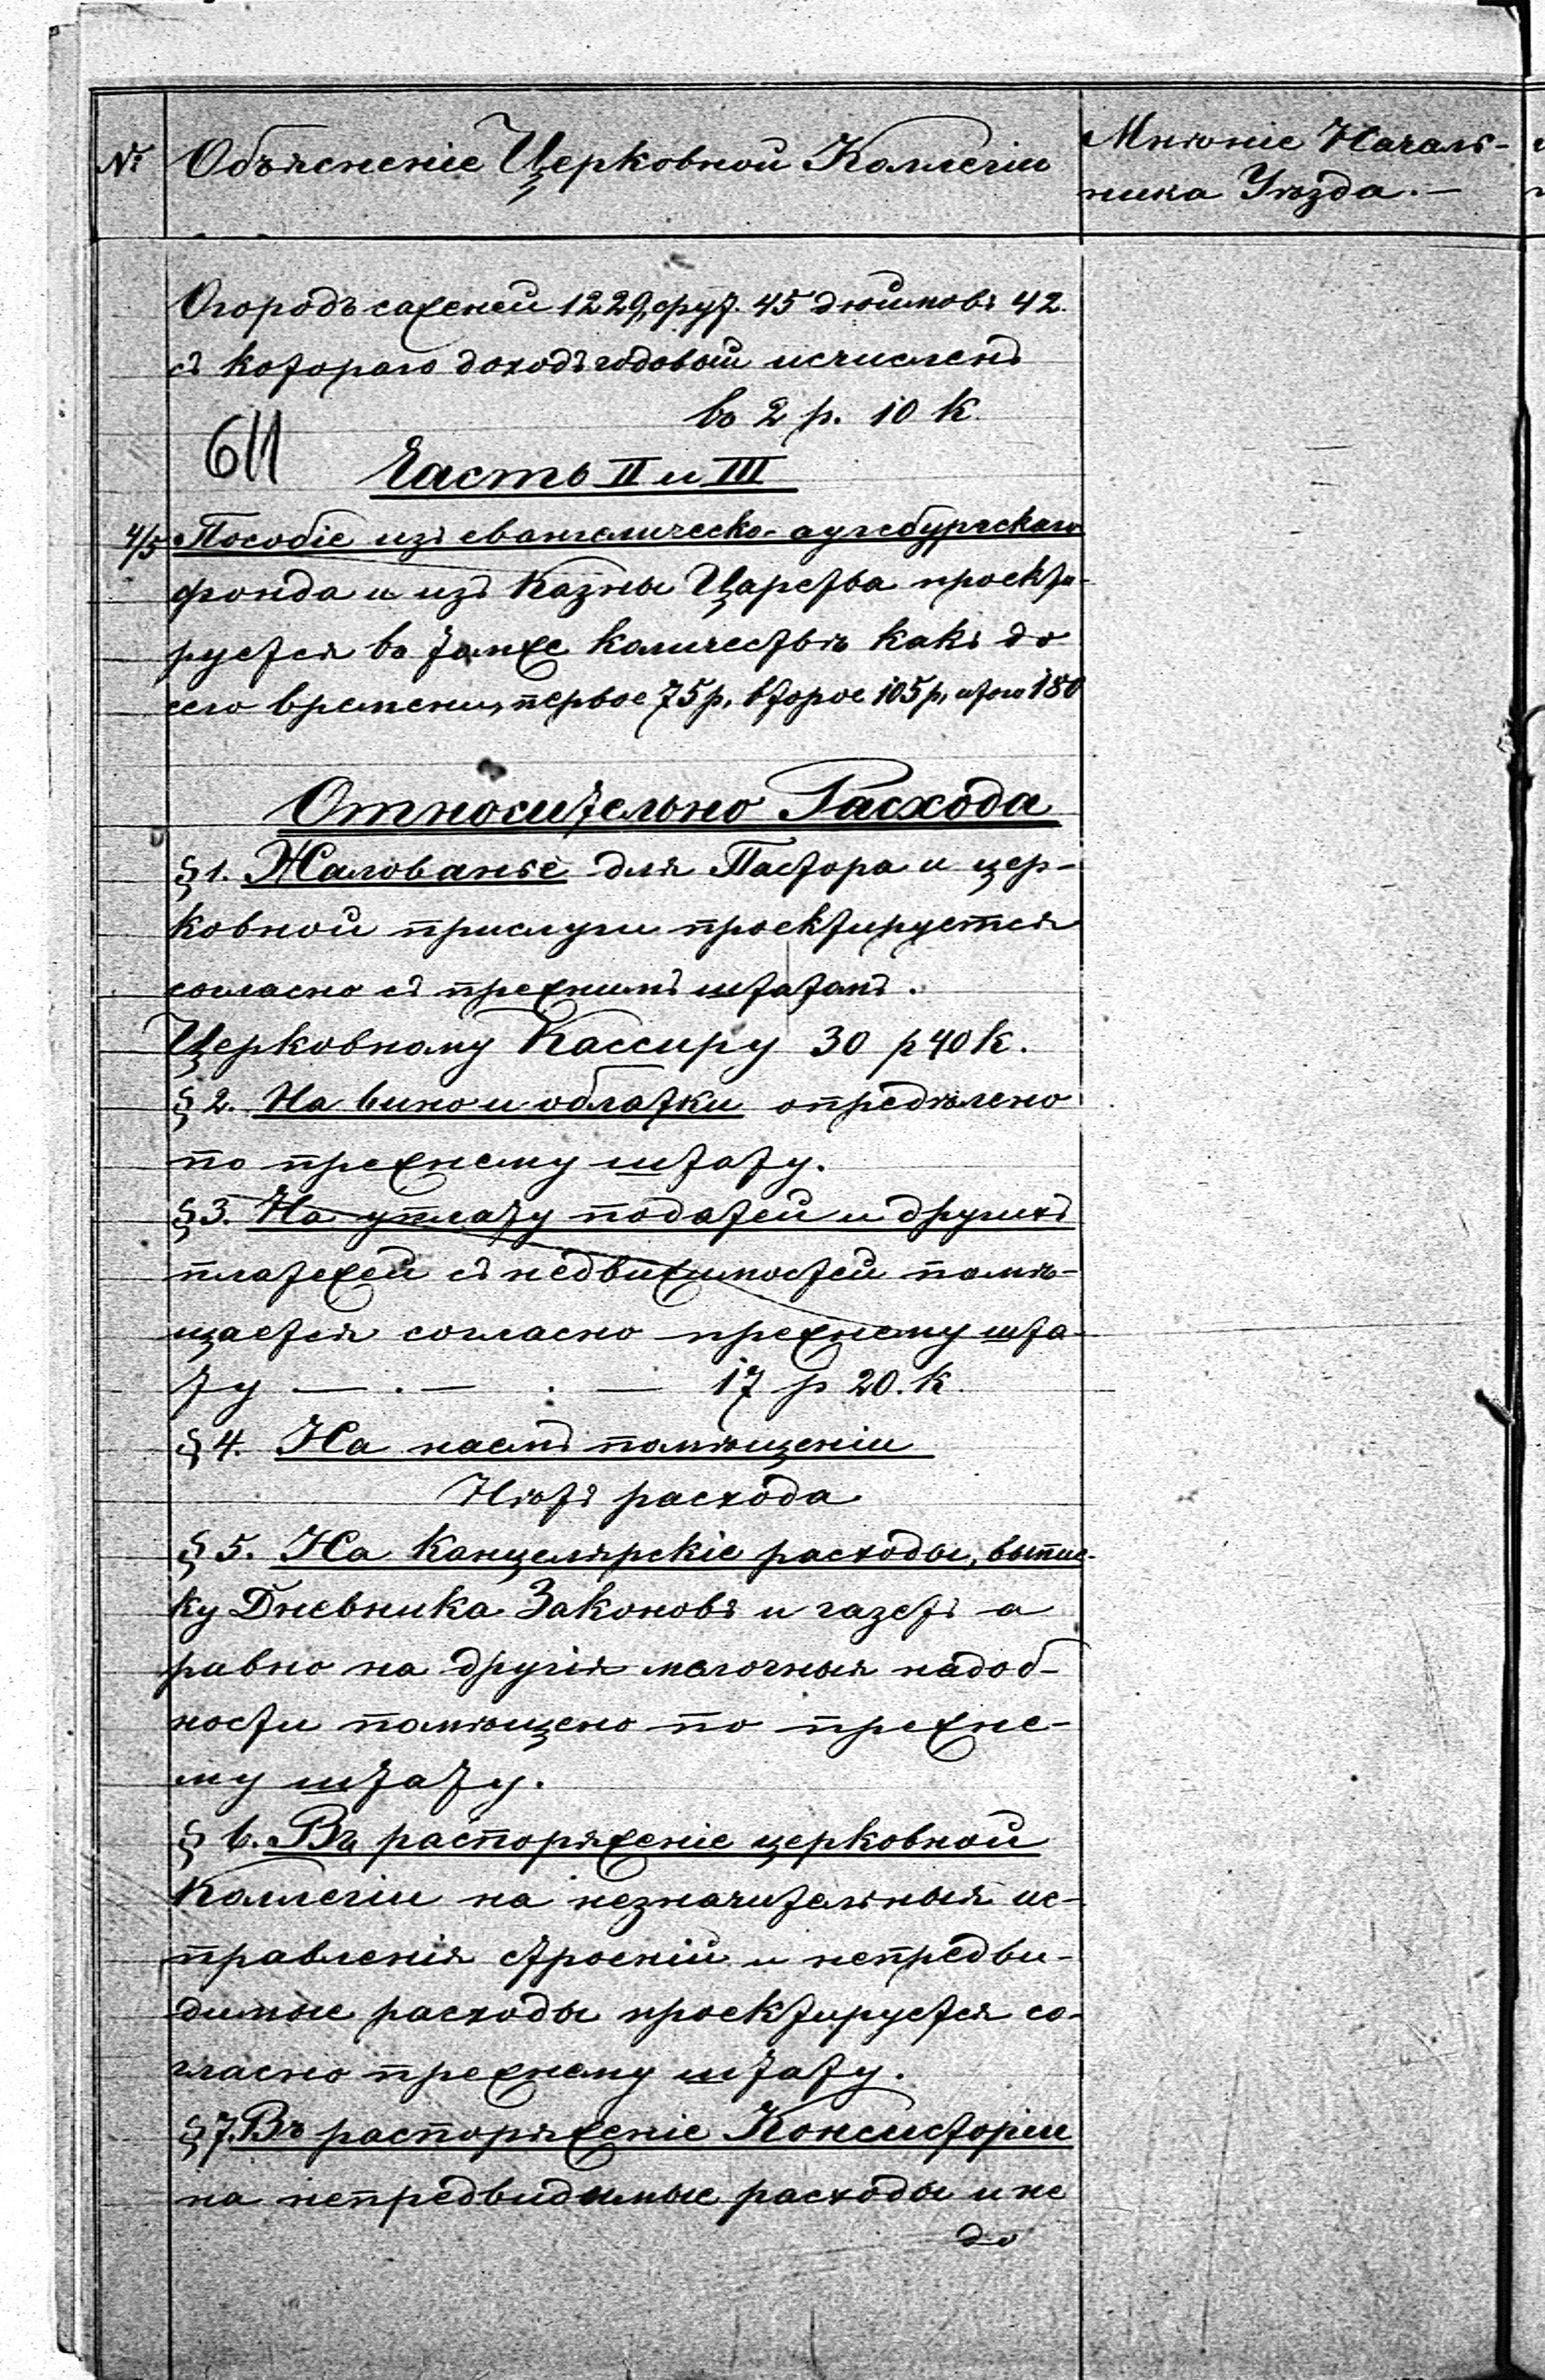 № Объясненіе Церковной Коллегіи
Мнѣніе Началь-
ника Уѣзда.—
Огородъ саженей 1229, фут. 45 дюймовъ 42.
съ котораго доходъ годовый исчисленъ
въ 2 р. 10 к.
611
Часть II и III
4/5 Пособіе изъ евангелическо-аугсбургскаго
фонда и изъ Казны Царства проекти-
руется въ томже количествѣ какъ до
сего времени, первое 75 р, второе 105 р, итого 180
Относительно Расхода
§ 1. Жалованье для Пастора и цер-
ковной прислуги проектируется
согласно съ прежнимъ штатомъ.
Церковному Кассиру 30 р 40 к.
§ 2. На вино и облатки опредѣлено
по прежнему штату.
§ 3. На уплату податей и другихъ
платежей съ недвижимостей помѣ-
щается согласно прежнему шта-
ту — . — . — 17 р 20. к.
§ 4. На наемъ помѣщеній
Нѣтъ расхода
§ 5. На Канцелярскіе расходы, выпис-
ку Дневника Законовъ и газетъ а
равно на другія мелочныя надоб-
ности помѣщено по прежне-
му штату.
§ 6. Въ распоряженіе церковной
Коллегіи на незначительныя ис-
правленія строеній и непредви-
димые расходы проектируется со-
гласно прежнему штату.
§ 7. Въ распоряженіе Консисторіи
на непредвидимые расходы и не
до